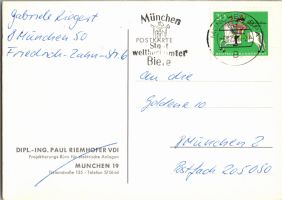 Gabriele Kiegert
8 München 50
Friedrich-Zahn-Str. 6
München
POSTKARTE
Stadt
weltberühmter
Biere
An die
Goldene 10
8 München 2
Postfach 205050
DIPL.-ING. PAUL RIEMHOFER VDI
Projektierungs-Büro für elektrische Anlagen
MÜNCHEN 19